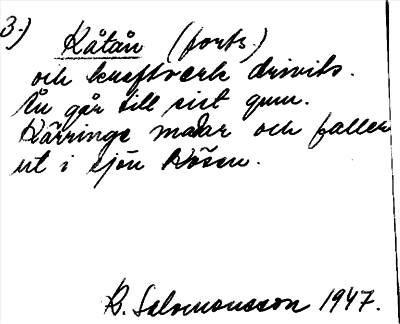 3.) Kåtån (forts.)
och kraftverk drivits.
Ån går till sist gnm.
Kärringe madar och faller
ut i sjön Kösen.
R. Salomonsson 1947.